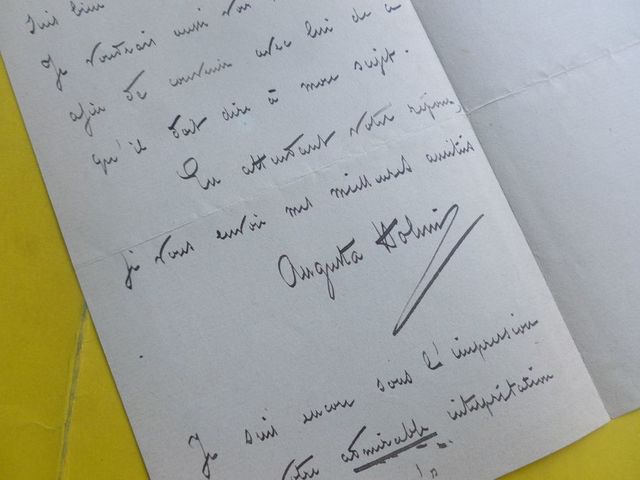 suis bien
Je voudrais aussi vous
afin de convenir avec lui de ce
qu'il doit dire à mon sujet.
En attendant votre réponse,
je vous envoie mes meilleures amitiés
Augusta Holmès
Je suis encore sous l'impression
votre admirable interprétation